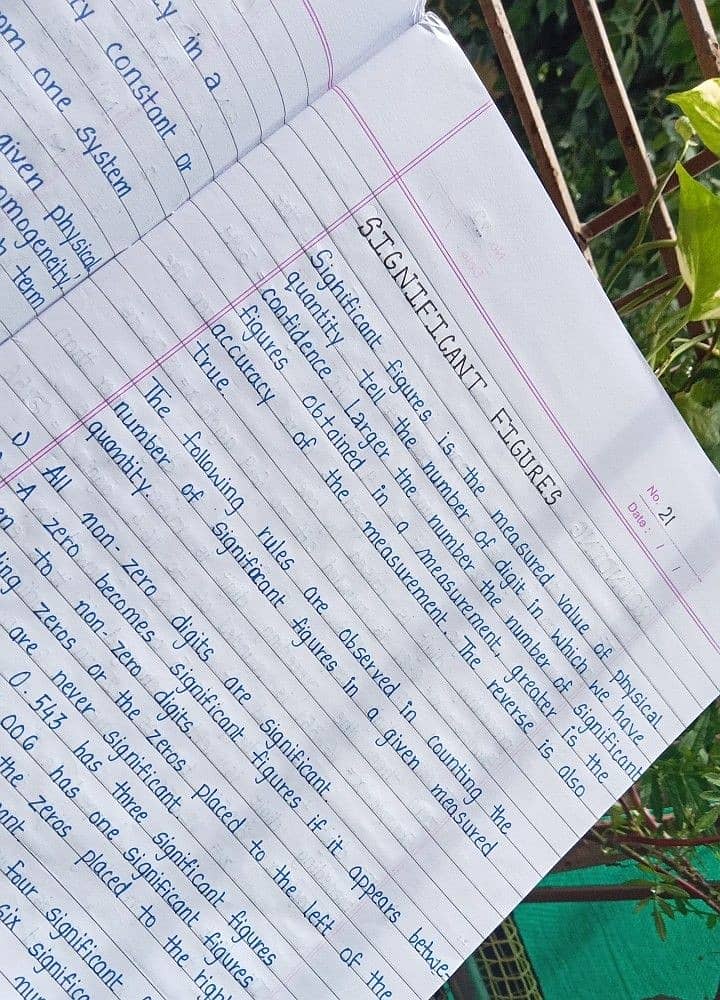 y in a
ty constant or
om one system
given physical
mogeneity
term
No. 21
Date: / /
SIGNIFICANT FIGURES
Significant figures is the measured value of physical
quantity tell the number of digit in which we have
confidence. Larger the number the number of significant
figures obtained in a measurement, greater is the
accuracy of the measurement. The reverse is also
true
The following rules are observed in counting the
number of significant figures in a given measured
quantity.
1) All non-zero digits are significant.
A zero becomes significant figures if it appears betwe
en to non-zero digits
ing zeros or the zeros placed to the left of the
are never significant.
0.543 has three significant figures
006 has one significant figures
the zeros placed to the righ
ant
four significant
six significa
nu